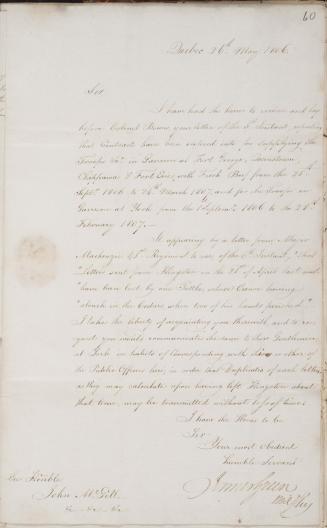 60
Quebec 26th May 1806.
Sir
I have had the honor to receive and lay
before Colonel Bowes your letter of the 5th Instant, reporting
that Contracts have been entered into for supplying the
Troops &ca in Garrison at Fort George, Queenstown,
Chippawa & Fort Erie, with Fresh Beef from the 25th
Septr 1806 to 24th March 1807, and for the Troops in
Garrison at York from the 1st Septemr 1806 to the 28th
February 1807.—
It appearing by a letter from Major
Mackenzie 41st Regiment to me of the 6th Instant, "that
"Letters sent from Kingston on the 28th of April last must
"have been lost by one Cuttle, whose Canoe having
"struck in the Cedars when two of his hands perished"
I take the liberty of acquainting you therewith, and to re-
quest you would communicate the same to those Gentlemen
at York in habits of Corresponding with this or other of
the Public Offices here, in order that Duplicates of such letters
as they may calculate upon having left Kingston about
that time, may be transmitted without loss of time.
I have the Honor to be
Sir
Your most obedient
humble Servant
James Green
Honble
John McGill
&ca &ca &ca